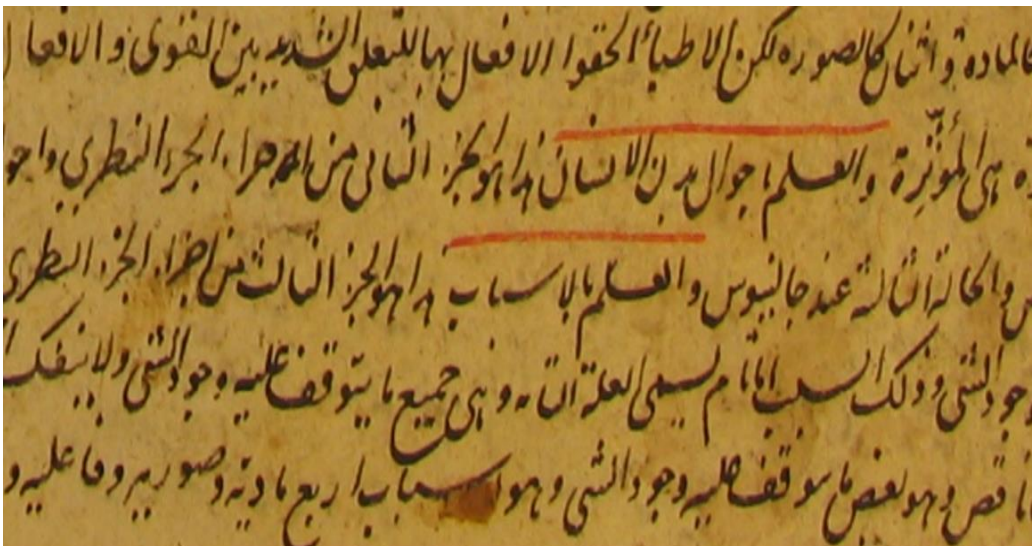 كالمادة واثنان كالصورة لكن الاطباء الحقوا الافعال بها للتعلق الشديد بين القوى والافعال
هى المؤثرة والعلم باحوال بدن الانسان هذا هو الجزء الثانى من اجزاء الجزء النظرى واحو
والحالة الثالثة عند جالينوس والعلم بالاسباب هذا هو الجزء الثالث من اجزاء الجزء النظرى
وجود الشئ وذلك السبب اما تام يسمى العلة التامة وهى جميع ما يتوقف عليه وجود الشئ ولا ينفك
ناقص وهو بعض ما يتوقف عليه وجود الشئ وهو اسباب اربع مادية وصورية وفاعلية و